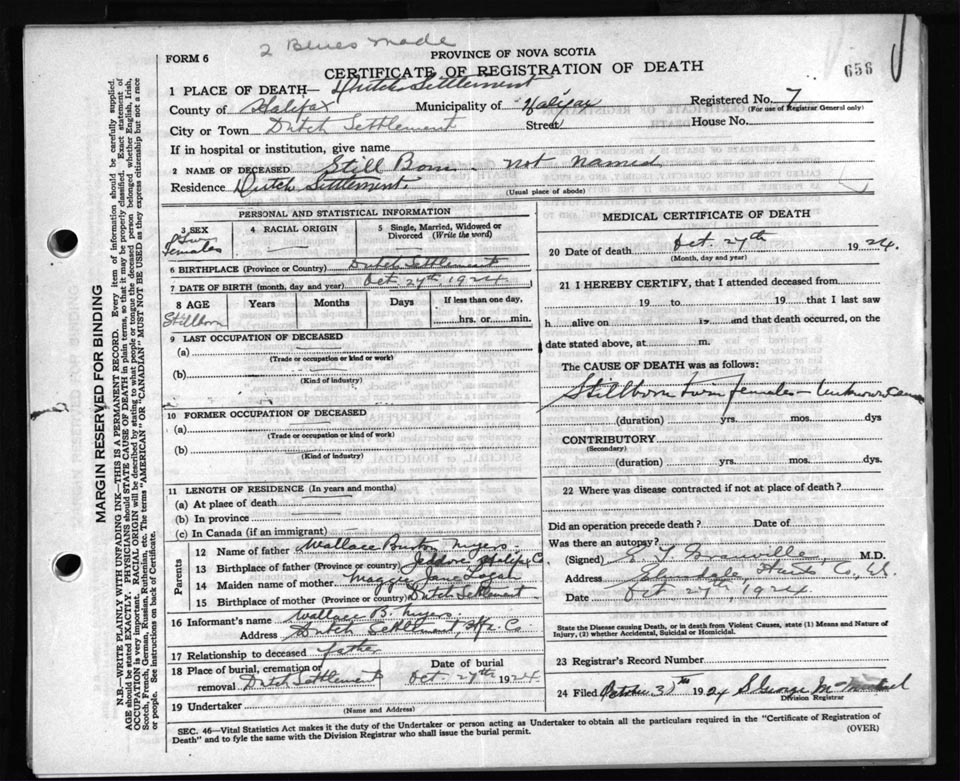 2 Blues made
FORM 6
PROVINCE OF NOVA SCOTIA
CERTIFICATE OF REGISTRATION OF DEATH
656
1 PLACE OF DEATH— Dutch Settlement
County of Halifax Municipality of Halifax Registered No. 7
(For use of Registrar General only)
City or Town Dutch Settlement Street House No.
If in hospital or institution, give name
2 NAME OF DECEASED Still Born - not named
Residence Dutch Settlement.
(Usual place of abode)
PERSONAL AND STATISTICAL INFORMATION
3 SEX 4 RACIAL ORIGIN 5 Single, Married, Widowed or Divorced (Write the word)
Females
6 BIRTHPLACE (Province or Country) Dutch Settlement
7 DATE OF BIRTH (month, day and year) Oct 27th 1924
8 AGE Years Months Days If less than one day,
Stillborn hrs. or min.
9 LAST OCCUPATION OF DECEASED
(a)
(Trade or occupation or kind of work)
(b)
(Kind of industry)
10 FORMER OCCUPATION OF DECEASED
(a)
(Trade or occupation or kind of work)
(b)
(Kind of industry)
11 LENGTH OF RESIDENCE (In years and months)
(a) At place of death
(b) In province
(c) In Canada (if an immigrant)
Parents
12 Name of father Wallace Burton Myers
13 Birthplace of father (Province or country) Jeddore Halifax Co.
14 Maiden name of mother Maggie Jane Logan
15 Birthplace of mother (Province or country) Dutch Settlement
16 Informant's name Wallace B. Myers.
Address Dutch Settlement, Hfx. Co.
17 Relationship to deceased father
18 Place of burial, cremation or removal Dutch Settlement Date of burial Oct 27th 1924
19 Undertaker
(Name and Address)
MEDICAL CERTIFICATE OF DEATH
20 Date of death Oct. 27th 1924.
(Month, day and year)
21 I HEREBY CERTIFY, that I attended deceased from
19 to 19 that I last saw
h alive on 19 and that death occurred, on the
date stated above, at m.
The CAUSE OF DEATH was as follows:
Stillborn twin females - Unknown Cause
(duration) yrs. mos. dys
CONTRIBUTORY
(Secondary)
(duration) yrs. mos. dys.
22 Where was disease contracted if not at place of death?
Did an operation precede death? Date of
Was there an autopsy?
(Signed) Granville M.D.
Address Elmsdale, Hants Co., N.S.
Date Oct 27th, 1924.
State the Disease causing Death, or in death from Violent Causes, state (1) Means and Nature of
Injury, (2) whether Accidental, Suicidal or Homicidal.
23 Registrar's Record Number
24 Filed October 1924 S George
Division Registrar
SEC. 46—Vital Statistics Act makes it the duty of the Undertaker or person acting as Undertaker to obtain all the particulars required in the "Certificate of Registration of
Death" and to fyle the same with the Division Registrar who shall issue the burial permit.
(OVER)
MARGIN RESERVED FOR BINDING
N.B.—WRITE PLAINLY WITH UNFADING INK—THIS IS A PERMANENT RECORD. Every item of information should be carefully supplied.
AGE should be stated EXACTLY. PHYSICIANS should STATE CAUSE OF DEATH in plain terms, so that it may be properly classified. Exact statement of
OCCUPATION is very important. RACIAL ORIGIN will be described by stating to what people or tongue the deceased person belonged whether English, Irish,
Scotch, French, German, Russian, Ruthenian, etc. The terms "AMERICAN" or "CANADIAN" MUST NOT BE USED as they express citizenship but not a race
or people. See instructions on back of Certificate.